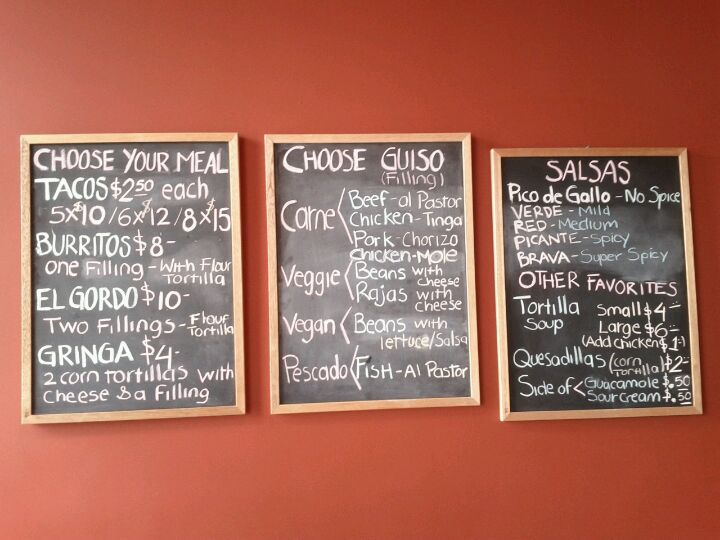 CHOOSE YOUR MEAL
TACOS $2.50 each
5x$10 / 6x$12 / 8x$15
BURRITOS $8-
one Filling - With Flour
Tortilla
EL GORDO $10-
Two Fillings - Flour
Tortilla
GRINGA $4-
2 corn tortillas with
Cheese & a Filling
CHOOSE GUISO
(Filling)
Carne < Beef - al Pastor
Chicken - Tinga
Pork - Chorizo
Chicken - Mole
Veggie < Beans with
cheese
Rajas with
cheese
Vegan < Beans with
lettuce/Salsa
Pescado < FISH - Al Pastor
SALSAS
Pico de Gallo - No Spice
VERDE - Mild
RED - Medium
PICANTE - Spicy
BRAVA - Super Spicy
OTHER FAVORITES
Tortilla Small $4-
Soup Large $6-
(Add chicken $1-)
Quesadillas (corn
tortilla) $2-
Side of < Guacamole $.50
Sour Cream $.50